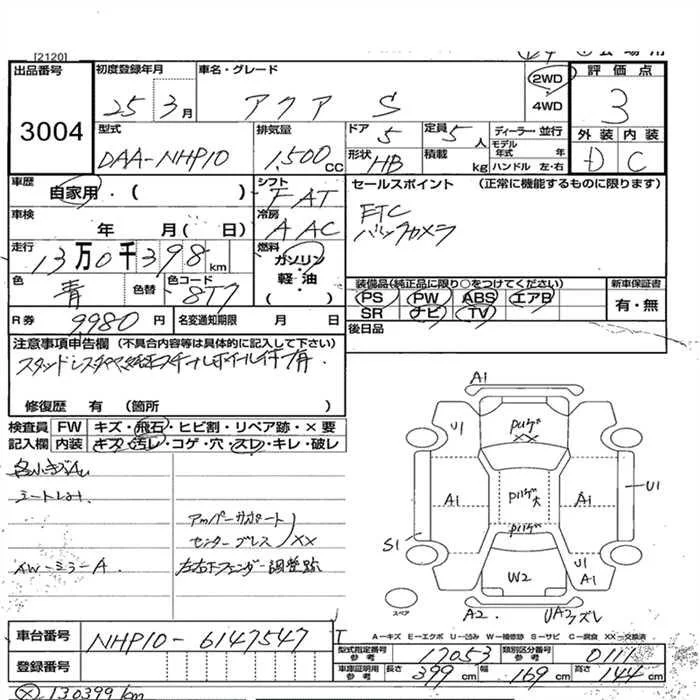 [2120]
出品番号
3004
初度登録年月
25 3月
車名・グレード
アクア S
2WD
4WD
評価点
3
外装 内装
D C
型式
DAA-NHP10
排気量
1,500cc
ドア
5
定員
5人
形状
HB
積載
kg
ディーラー・並行
モデル年式 年
ハンドル 左・右
車歴
自家用・( )
シフト
FAT
車検
年 月(日)
冷房
AAC
走行
13万0千398km
燃料
ガソリン・
軽・油
( )
色
青
色替
色コード
8T7
R券 9980円
名変通知期限 月 日
セールスポイント (正常に機能するものに限ります)
ETC
バックカメラ
装備品(純正品に限り○をつけてください)
PS PW ABS エアB
SR ナビ TV
新車保証書
有・無
後日品
注意事項申告欄 (不具合内容等は具体的に記入して下さい)
修復歴 有 (箇所 )
検査員 FW キズ・飛石・ヒビ割・リペア跡・×要
記入欄 内装 キズ・汚レ・コゲ・穴・スレ・キレ・破レ
アッパーサポート
センターブレス XX
AWーミラーA
左右下フェンダー調整跡
A1
U1
XX
A1
A1
U1
S1
W2
U1
A1
A2
UA2 ズレ
スペア
A-キズ E-エクボ U-凹み W-補修跡 S-サビ C-腐食 XX-交換済
車台番号
NHP10-6147547
登録番号
型式指定番号 参考 17053
類別区分番号 参考 0111
車庫証明用 参考 長さ 399cm 幅 169cm 高さ 144cm
130399km